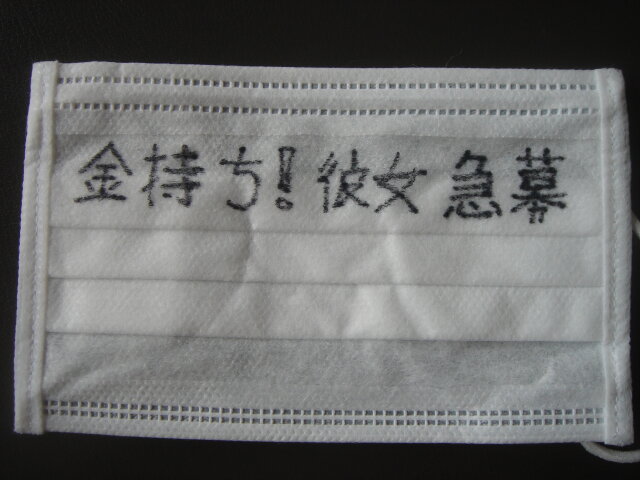 金持ち!彼女急募